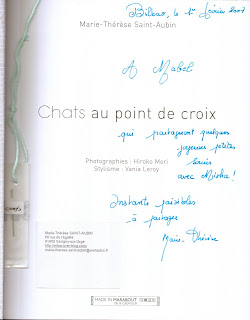 Bilbao, le 1er Février 2007
Marie-Thérèse Saint-Aubin
A Mabel
Chats au point de croix
qui partageront quelques
joyeuses petites
avec Mirka!
Photographies : Hiroko Mori
Stylisme : Vania Leroy
Instants paisibles
à partager
Marie-Thérèse
Marie-Thérèse SAINT-AUBIN
MADE IN MARABOUT